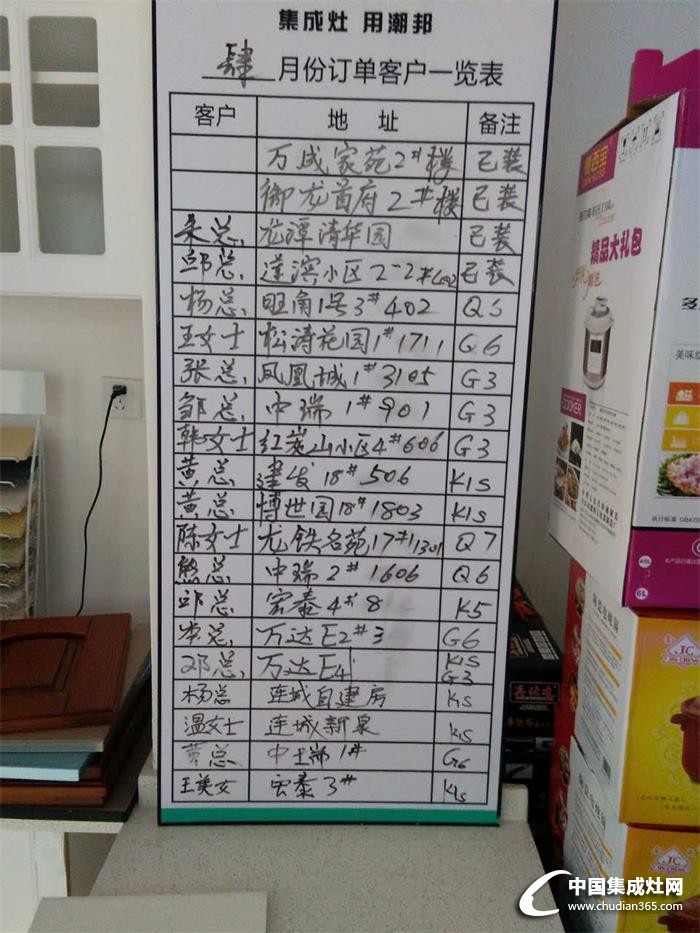 集成灶 用潮邦
肆 月份订单客户一览表
客户 地 址 备注
万成家苑2#楼 已装
御龙首府2#楼 已装
朱总 龙潭清华园 已装
邱总 莲滨小区2-2#602 已装
杨总 旺角1号3#402 Q5
王女士 松涛花园1#1711 Q6
张总 凤凰城1#3105 G3
邹总 中瑞1#901 G3
韩女士 红炭山小区4#606 G3
黄总 建发18#506 K1S
黄总 博世园18#1803 K1S
陈女士 龙铁名苑17#1301 Q7
熊总 中瑞2#1606 Q6
邱总 宏泰4#8 K5
总 万达E2#3 G6
邓总 万达E4 K1S G3
杨总 连城自建房 K1S
温女士 连城新泉 K1S
总 中瑞1# G6
王美女 宏泰3# K1S
精品大礼包
COOKER
美味
执行标准
6L
JC
JC
中国集成灶网
www.chudian365.com